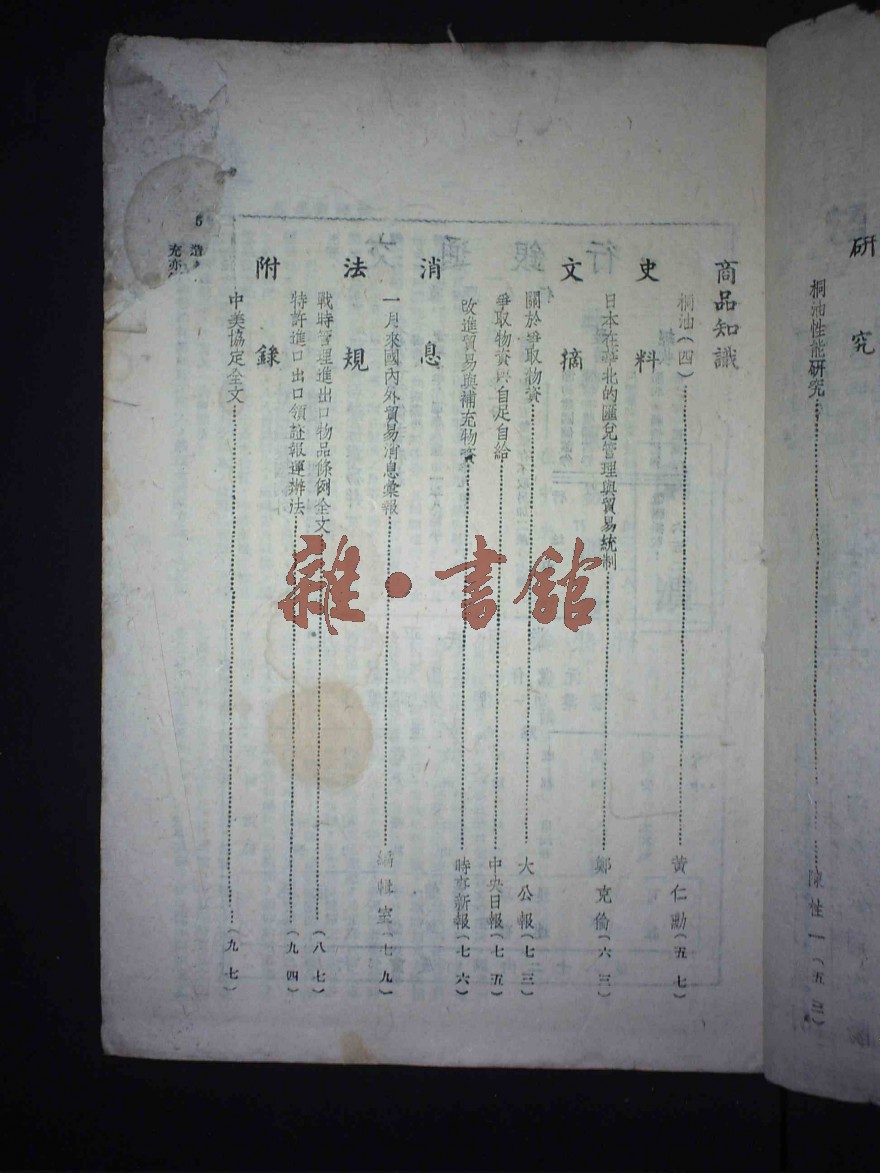 研究
桐油性能研究 陳性一(五三)
商品知識
桐油(四) 黃仁勳(五七)
史料
日本在華北的匯兌管理與貿易統制 鄭克倫(六三)
文摘
關於爭取物資 大公報(七三)
爭取物資與自足自給 中央日報(七五)
改進貿易與補充物資 時事新報(七六)
消息
一月來國內外貿易消息彙報 編輯室(七九)
法規
戰時管理進出口物品條例全文 (八七)
特許進口出口領証報運辦法 (九四)
附錄
中美協定全文 (九七)
雜·書館